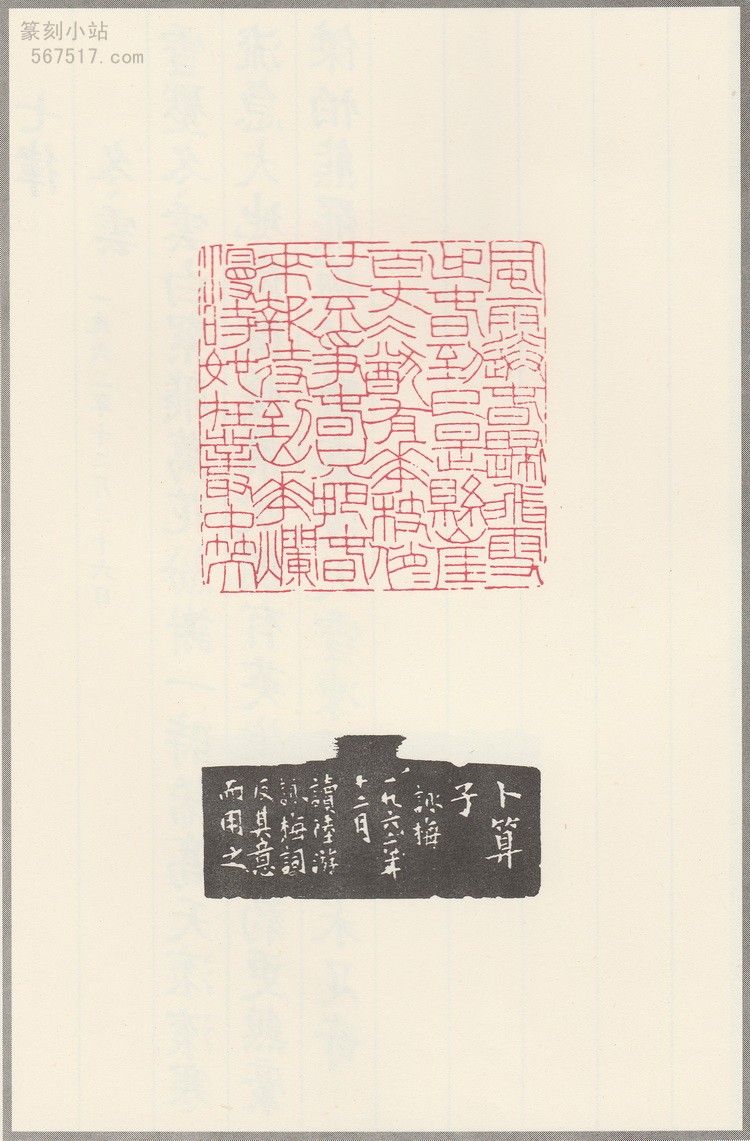 篆刻小站
567517.com
風雨送春歸飛雪
迎春到已是縣崖
百丈仌猷有華枝俏
也不爭春只把春
來報待到山華爛
漫時她在叢中笑
卜算
子
詠梅
一九六一年
十二月
讀陸游
詠梅詞
反其意
而用之